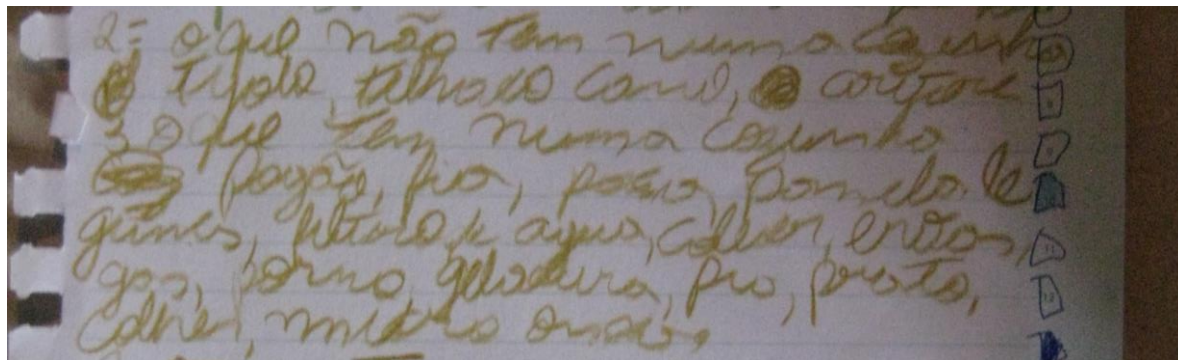 2= o que não tem numa cozinha
tijolo, telhado canil,
3 o que tem numa cozinha
fogão, pia, panela le
gumes, filtro de agua, colher,
gas, forno, geladeira, pia, prato,
colher, micro ondas,